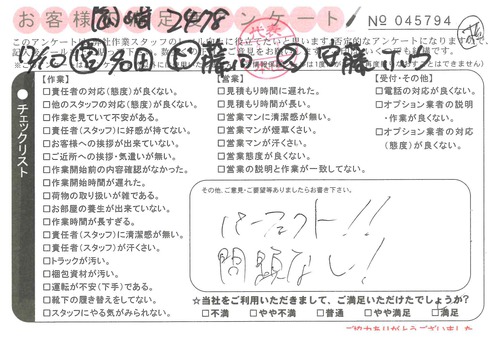 お客様満足度アンケート
No 045794
チェックリスト
【作業】
□責任者の対応(態度)が良くない。
□他のスタッフの対応(態度)が良くない。
□作業を見ていて不安がある。
□責任者(スタッフ)に好感が持てない。
□お客様への挨拶が出来ていない。
□ご近所への挨拶・気遣いが無い。
□作業開始前の内容確認がなかった。
□作業開始時間が遅れた。
□荷物の取り扱いが雑である。
□お部屋の養生が出来ていない。
□作業時間が長すぎる。
□責任者(スタッフ)に清潔感が無い。
□責任者(スタッフ)が汗くさい。
□トラックが汚い。
□梱包資材が汚い。
□運転が不安(下手)である。
□靴下の履き替えをしてない。
□スタッフにやる気がみられない。
【営業】
□見積もり時間に遅れた。
□見積もり時間が長い。
□営業マンに清潔感が無い。
□営業マンが煙草くさい。
□営業マンが汗くさい。
□営業態度が良くない。
□営業の説明と作業が一致してない。
【受付・その他】
□電話の対応が良くない。
□オプション業者の説明
・作業が良くない。
□オプション業者の対応
(態度)が良くない。
その他、ご意見・ご要望等ありましたらお書き下さい。
パーフェクト!!
問題なし!
☆当社をご利用いただきまして、ご満足いただけたでしょうか?
□不満 □やや不満 □普通 □やや満足 □満足
ご協力ありがとうございました